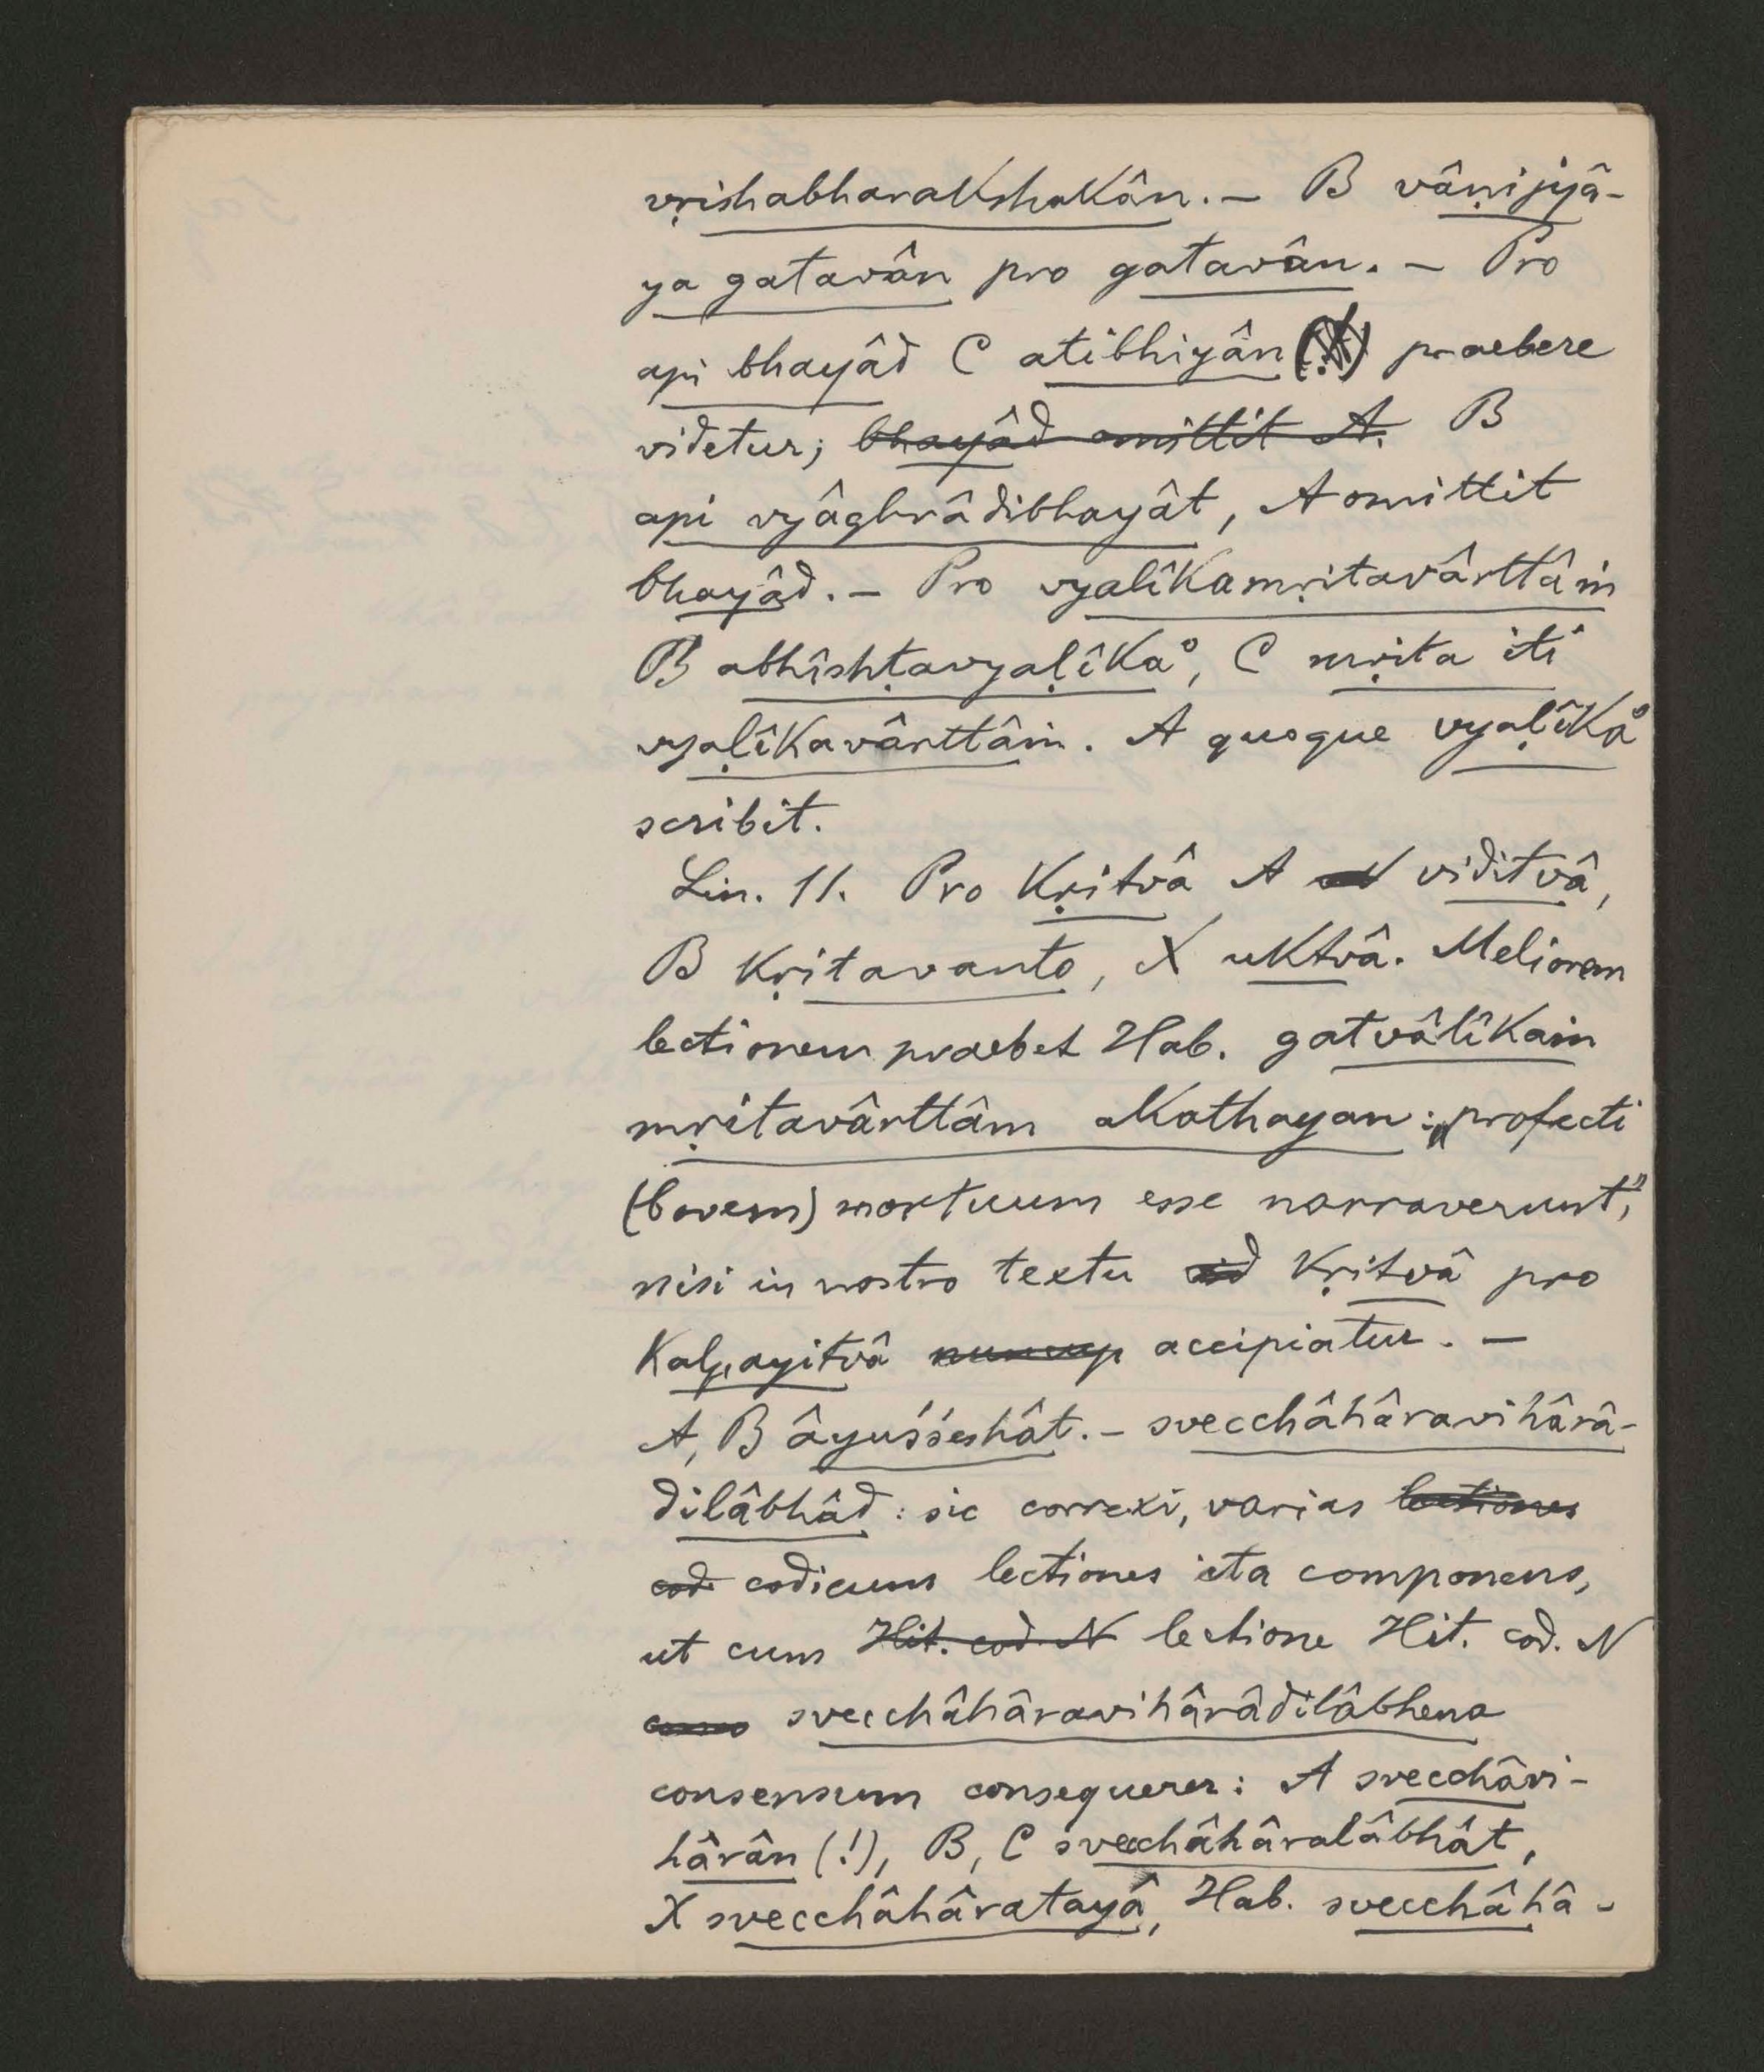 vṛishabharakshakân. — B vâṇijyâ-
ya gatavân pro gatavân. — Pro
api bhayâd C atibhiyân praebere
videtur; bhayâd omittit A. B
api vyâghrâdibhayât, A omittit
bhayâd. — Pro vyalîkamṛitavârttâṁ
B abhîshṭavyaḷîka°, C mṛita iti
vyaḷîkavârttâṁ. A quoque vyaḷîka°
scribit.
Lin. 11. Pro kṛitvâ A viditvâ,
B kṛitavanto, X uktvâ. Meliorem
lectionem praebet Hab. gatvâlîkaṁ
mṛitavârttâm akathayan: „profecti
(bovem) mortuum esse narraverunt,"
nisi in nostro textu kṛitvâ pro
kalpayitvâ accipiatur. —
A, B âyuśśeshât. — svecchâhâravihârâ-
dilâbhâd: sic correxi, varias lectiones
cod codicum lectiones ita componens,
ut cum Hit. cod. N lectione Hit. cod. N
svecchâhâravihârâdilâbhena
consensum consequerer: A svecchâvi-
hârân (!), B, C svecchâhâralâbhât,
X svecchâhâratayâ, Hab. svecchâhâ-